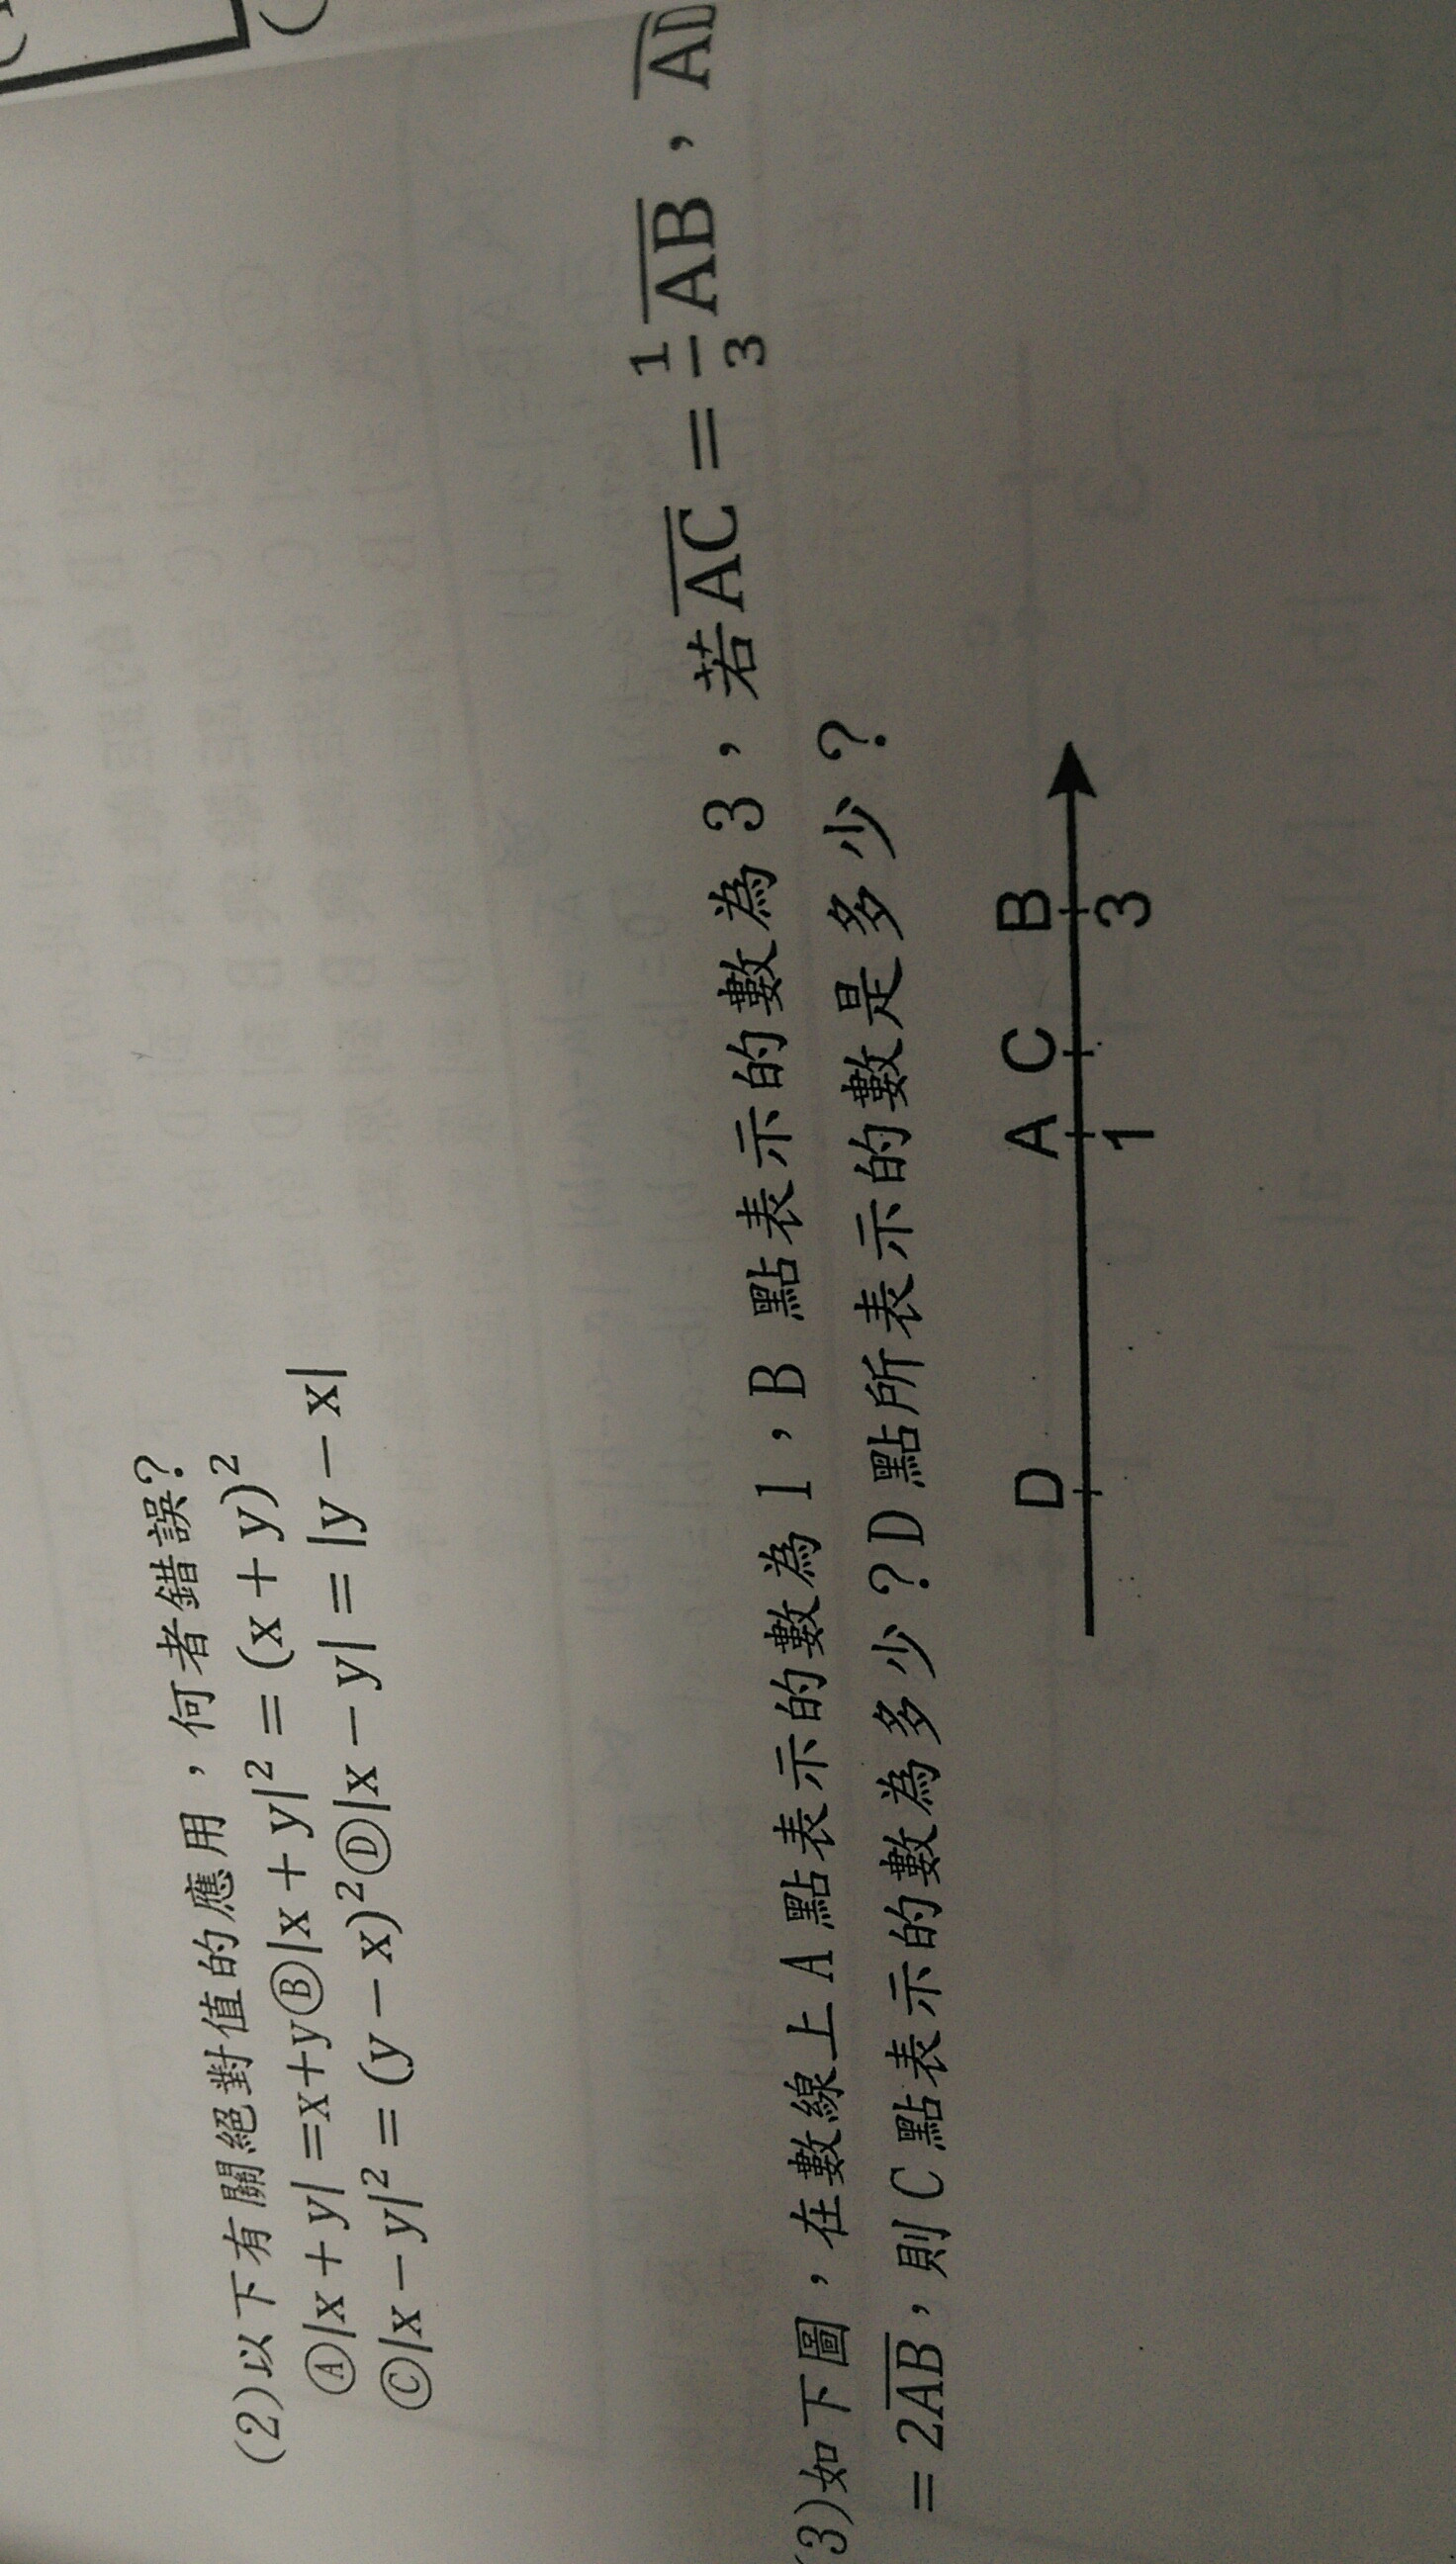 (2)以下有關絕對值的應用，何者錯誤?
Ⓐ|x + y| =x+yⒷ|x + y|² = (x + y)²
Ⓒ|x − y|² = (y − x)²Ⓓ|x − y| = |y − x|
(3)如下圖，在數線上 A 點表示的數為 1，B 點表示的數為 3，若AC = 1/3 AB，AD
= 2AB，則 C 點表示的數為多少？D 點所表示的數是多少？
D A C B
1 3